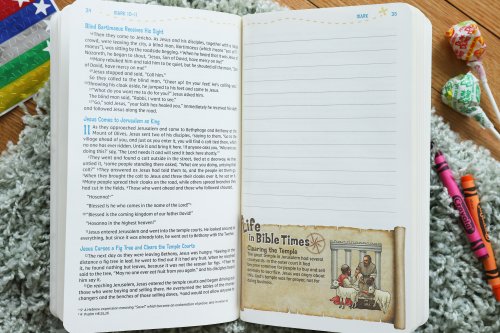 34 MARK 10–11
Blind Bartimaeus Receives His Sight
46 Then they came to Jericho. As Jesus and his disciples, together with a large
crowd, were leaving the city, a blind man, Bartimaeus (which means "son of Ti-
maeus"), was sitting by the roadside begging. 47 When he heard that it was Jesus of
Nazareth, he began to shout, "Jesus, Son of David, have mercy on me!"
48 Many rebuked him and told him to be quiet, but he shouted all the more, "Son
of David, have mercy on me!"
49 Jesus stopped and said, "Call him."
So they called to the blind man, "Cheer up! On your feet! He's calling you."
50 Throwing his cloak aside, he jumped to his feet and came to Jesus.
51 "What do you want me to do for you?" Jesus asked him.
The blind man said, "Rabbi, I want to see."
52 "Go," said Jesus, "your faith has healed you." Immediately he received his sight
and followed Jesus along the road.
Jesus Comes to Jerusalem as King
11 As they approached Jerusalem and came to Bethphage and Bethany at the
Mount of Olives, Jesus sent two of his disciples, 2 saying to them, "Go to the
village ahead of you, and just as you enter it, you will find a colt tied there, which
no one has ever ridden. Untie it and bring it here. 3 If anyone asks you, 'Why are you
doing this?' say, 'The Lord needs it and will send it back here shortly.'"
4 They went and found a colt outside in the street, tied at a doorway. As they
untied it, 5 some people standing there asked, "What are you doing, untying that
colt?" 6 They answered as Jesus had told them to, and the people let them go.
7 When they brought the colt to Jesus and threw their cloaks over it, he sat on it.
8 Many people spread their cloaks on the road, while others spread branches they
had cut in the fields. 9 Those who went ahead and those who followed shouted,
"Hosanna!"
"Blessed is he who comes in the name of the Lord!"
10 "Blessed is the coming kingdom of our father David!"
"Hosanna in the highest heaven!"
11 Jesus entered Jerusalem and went into the temple courts. He looked around at
everything, but since it was already late, he went out to Bethany with the Twelve.
Jesus Curses a Fig Tree and Clears the Temple Courts
12 The next day as they were leaving Bethany, Jesus was hungry. 13 Seeing in the
distance a fig tree in leaf, he went to find out if it had any fruit. When he reached
it, he found nothing but leaves, because it was not the season for figs. 14 Then he
said to the tree, "May no one ever eat fruit from you again." And his disciples heard
him say it.
15 On reaching Jerusalem, Jesus entered the temple courts and began driving out
those who were buying and selling there. He overturned the tables of the money
changers and the benches of those selling doves, 16 and would not allow anyone
MARK 35
Life
in Bible Times
Clearing the Temple